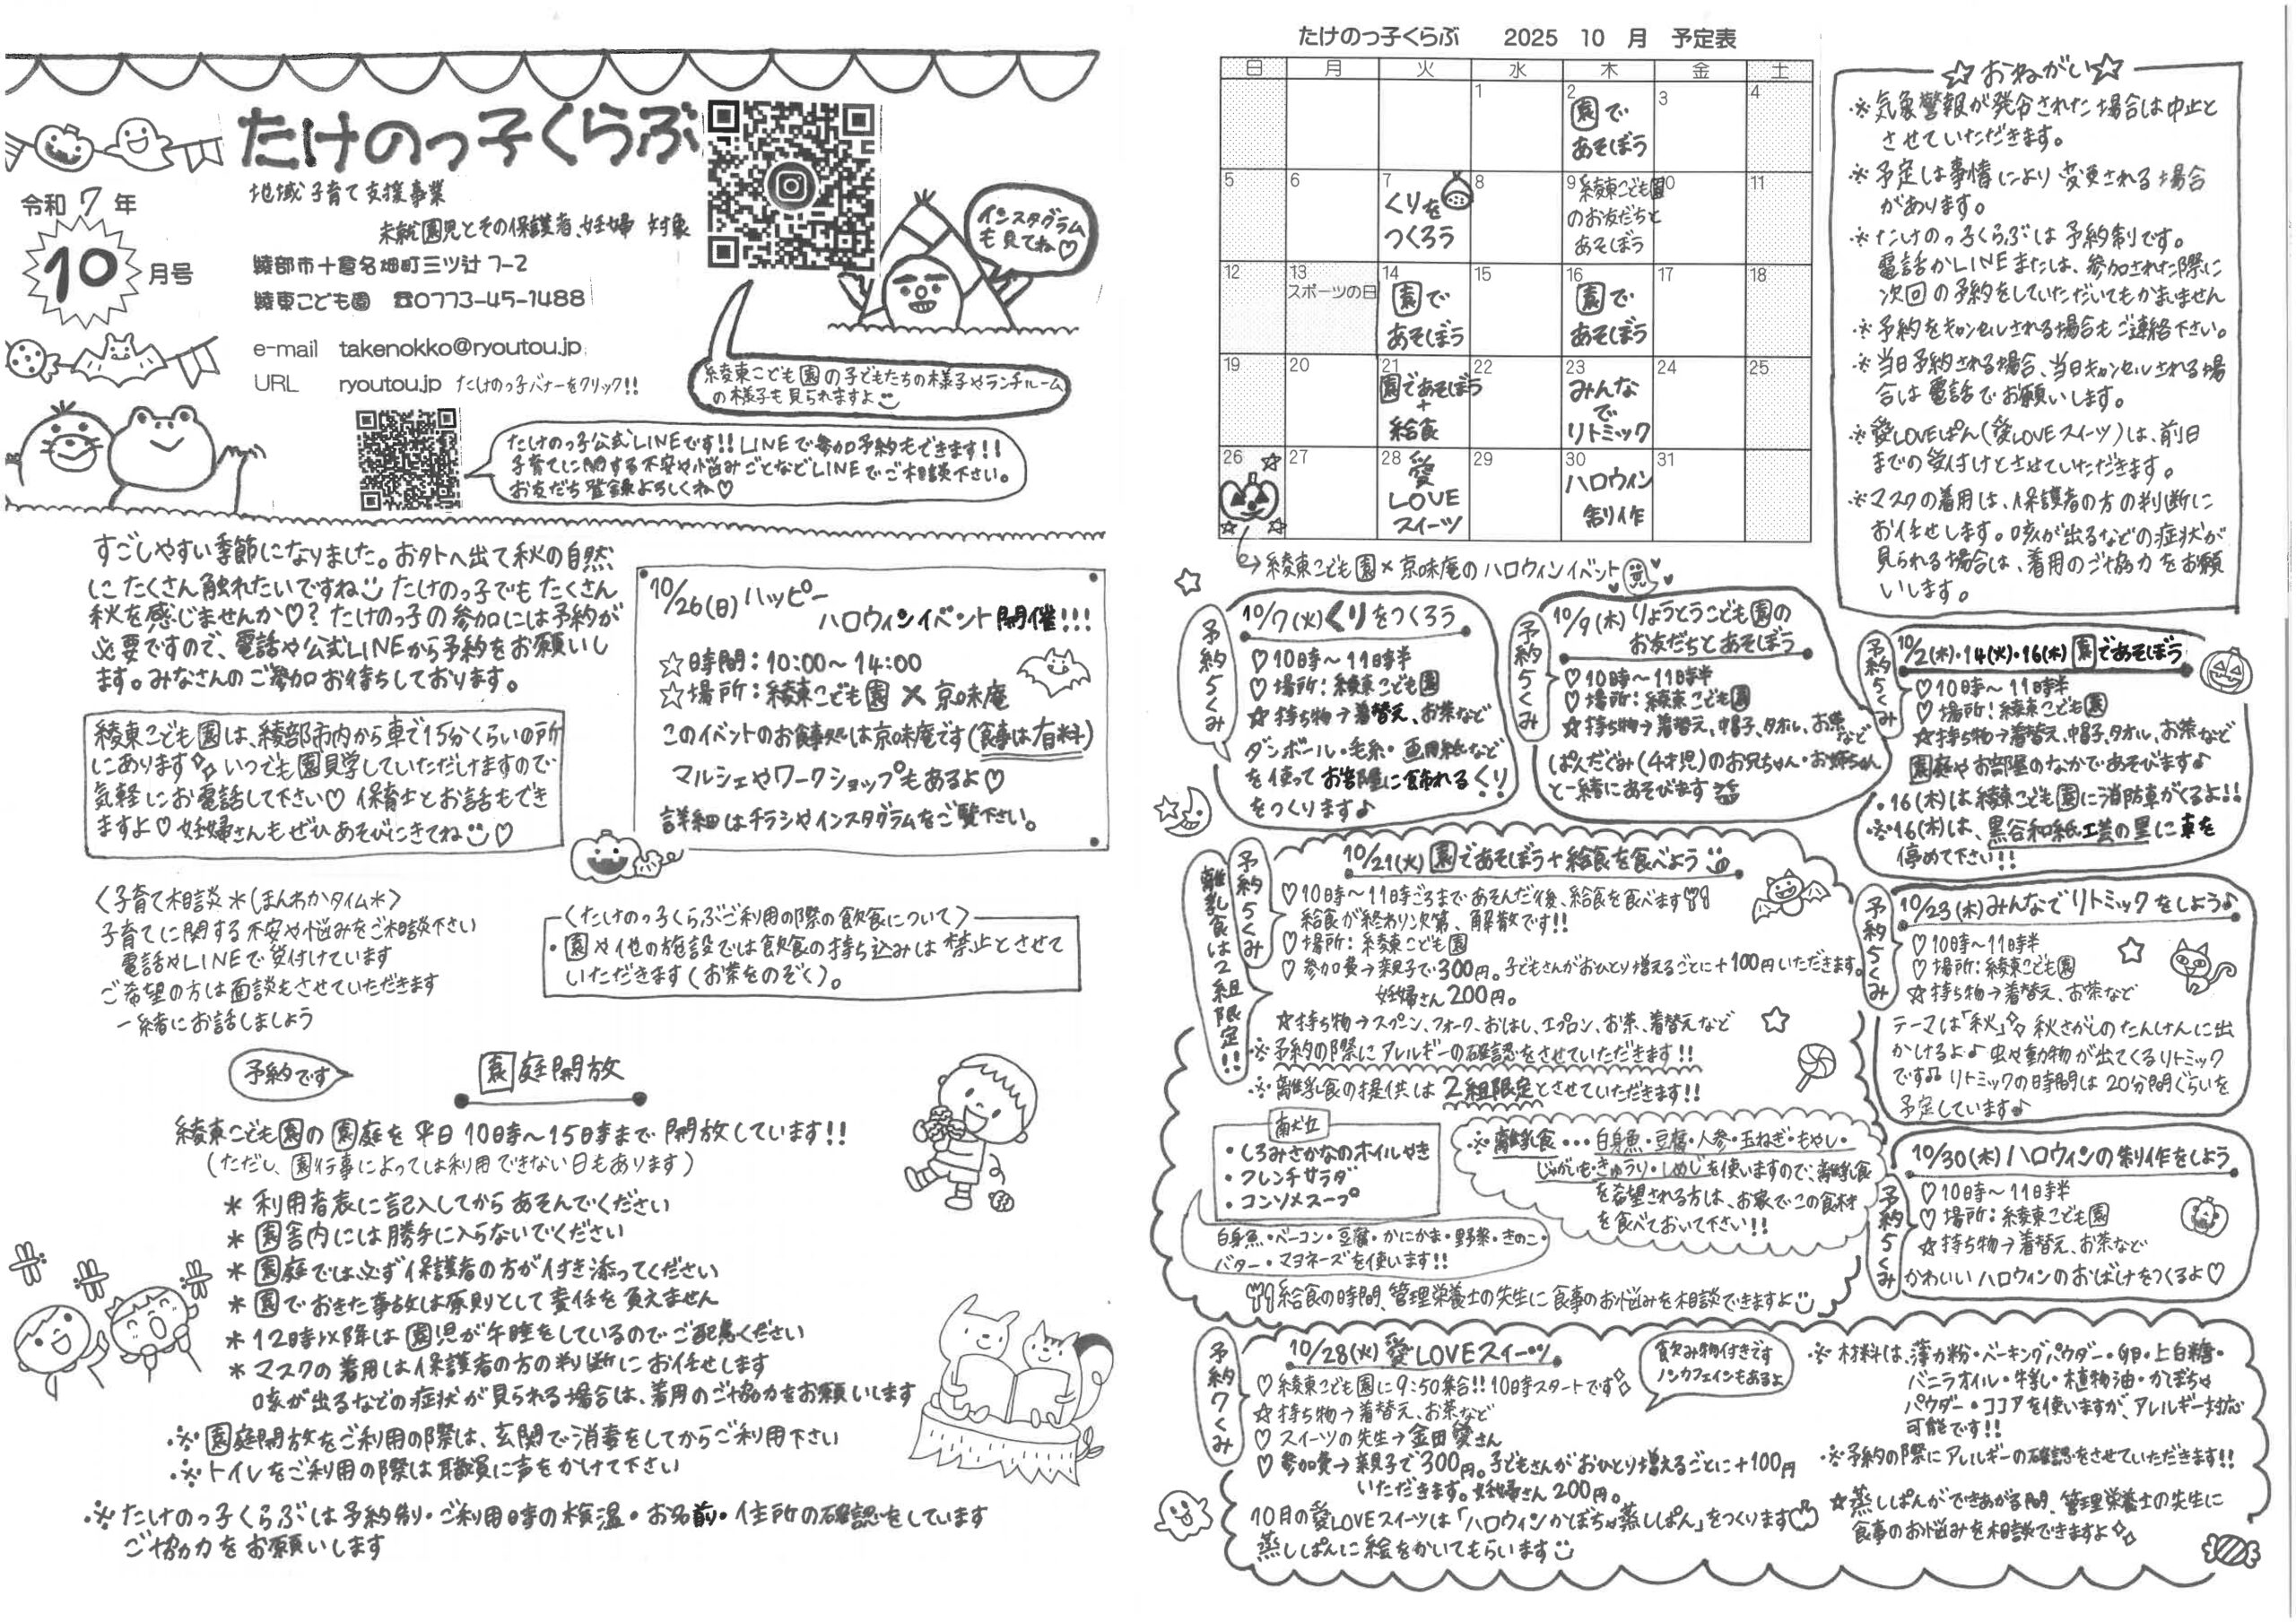 たけのっ子くらぶ
令和7年
10月号
地域子育て支援事業
未就園児とその保護者、妊婦 対象
綾部市十倉名畑町三ツ辻7-2
綾東こども園 ☎0773-45-1488
e-mail takenokko@ryoutou.jp
URL ryoutou.jp たけのっ子バナーをクリック!!
インスタグラム
も見てね♡
綾東こども園の子どもたちの様子やランチルーム
の様子も見られますよ
たけのっ子公式LINEです!! LINEで参加予約もできます!!
子育てに関する不安や悩みごとなどLINEでご相談下さい。
お友だち登録よろしくね♡
すごしやすい季節になりました。お外へ出て秋の自然
にたくさん触れたいですね たけのっ子でもたくさん
秋を感じませんか♡? たけのっ子の参加には予約が
必要ですので、電話や公式LINEから予約をお願いし
ます。みなさんのご参加お待ちしております。
綾東こども園は、綾部市内から車で15分くらいの所
にあります いつでも園見学していただけますので
気軽にお電話して下さい♡ 保育士とお話もでき
ますよ♡ 妊婦さんもぜひあそびにきてね♡
10/26(日)ハッピー
ハロウィンイベント開催!!!
☆時間:10:00~14:00
☆場所:綾東こども園×京味庵
このイベントのお食事処は京味庵です(食事は有料)
マルシェやワークショップもあるよ♡
詳細はチラシやインスタグラムをご覧下さい。
〈子育て相談*(ほんわかタイム*)〉
子育てに関する不安や悩みをご相談下さい
電話やLINEで受付けています
ご希望の方は面談もさせていただきます
一緒にお話しましょう
〈たけのっ子くらぶご利用の際の飲食について〉
・園や他の施設では飲食の持ち込みは禁止とさせて
いただきます(お茶をのぞく)。
予約です
園庭開放
綾東こども園の園庭を平日10時~15時まで開放しています!!
(ただし、園行事によっては利用できない日もあります)
* 利用者表に記入してからあそんでください
* 園舎内には勝手に入らないでください
* 園庭では必ず保護者の方が付き添ってください
* 園でおきた事故は原則として責任を負えません
* 12時以降は園児が午睡をしているのでご配慮ください
* マスクの着用は保護者の方の判断にお任せします
咳が出るなどの症状が見られる場合は、着用のご協力をお願いします
※園庭開放をご利用の際は、玄関で消毒をしてからご利用下さい
※トイレをご利用の際は職員に声をかけて下さい
※たけのっ子くらぶは予約制・ご利用時の検温・お名前・住所の確認をしています
ご協力をお願いします
たけのっ子くらぶ 2025 10 月 予定表
日 月 火 水 木 金 土
1 2 3 4
園で
あそぼう
5 6 7 8 9 10 11
くりを
つくろう
綾東こども園
のお友だちと
あそぼう
12 13 14 15 16 17 18
スポーツの日
園で
あそぼう
園で
あそぼう
19 20 21 22 23 24 25
園であそぼう
+
給食
みんな
で
リトミック
26 27 28 29 30 31
愛
LOVE
スイーツ
ハロウィン
制作
→綾東こども園×京味庵のハロウィンイベント
☆おねがい☆
※気象警報が発令された場合は中止と
させていただきます。
※予定は事情により変更される場合
があります。
※たけのっ子くらぶは予約制です。
電話かLINEまたは、参加された際に
次回の予約をしていただいてもかまいません
※予約をキャンセルされる場合もご連絡下さい。
※当日予約される場合、当日キャンセルされる場
合は電話でお願いします。
※愛LOVEぱん(愛LOVEスイーツ)は、前日
までの受付けとさせていただきます。
※マスクの着用は、保護者の方の判断に
お任せします。咳が出るなどの症状が
見られる場合は、着用のご協力をお願
いします。
予約5くみ
10/7(火)くりをつくろう
♡10時~11時半
♡場所:綾東こども園
☆持ち物→着替え、お茶など
ダンボール・毛糸・画用紙など
を使ってお部屋に飾れるくり
をつくります♪
予約5くみ
10/9(木)りょうとうこども園の
お友だちとあそぼう
♡10時~11時半
♡場所:綾東こども園
☆持ち物→着替え、帽子、タオル、お茶など
ぱんだぐみ(4才児)のお兄ちゃん・お姉ちゃん
と一緒にあそびます
予約5くみ
10/2(木)・14(火)・16(木)園であそぼう
♡10時~11時半
♡場所:綾東こども園
☆持ち物→着替え、帽子、タオル、お茶など
園庭やお部屋のなかであそびます♪
・16(木)は綾東こども園に消防車がくるよ!!
※16(木)は、黒谷和紙工芸の里に車を
停めて下さい!!
予約5くみ
離乳食は2組限定!!
10/21(火)園であそぼう+給食を食べよう
♡10時~11時ごろまであそんだ後、給食を食べます
給食が終わり次第、解散です!!
♡場所:綾東こども園
♡参加費→親子で300円。子どもさんがおひとり増えるごとに+100円いただきます。
妊婦さん200円。
☆持ち物→スプーン、フォーク、おはし、エプロン、お茶、着替えなど
※予約の際にアレルギーの確認をさせていただきます!!
※離乳食の提供は2組限定とさせていただきます!!
献立
・しろみさかなのホイルやき
・フレンチサラダ
・コンソメスープ
白身魚・ベーコン・豆腐・かにかま・野菜・きのこ・
バター・マヨネーズを使います!!
※離乳食…白身魚・豆腐・人参・玉ねぎ・もやし・
じゃがいも・きゅうり・しめじを使いますので、離乳食
を希望される方は、お家でこの食材
を食べておいて下さい!!
給食の時間、管理栄養士の先生に食事のお悩みを相談できますよ
予約5くみ
10/23(木)みんなでリトミックをしよう♪
♡10時~11時半
♡場所:綾東こども園
☆持ち物→着替え、お茶など
テーマは「秋」 秋さがしのたんけんに出
かけるよ♪ 虫や動物が出てくるリトミック
です♫ リトミックの時間は20分間ぐらいを
予定しています♪
予約5くみ
10/30(木)ハロウィンの制作をしよう
♡10時~11時半
♡場所:綾東こども園
☆持ち物→着替え、お茶など
かわいいハロウィンのおばけをつくるよ♡
予約7くみ
10/28(火)愛LOVEスイーツ
♡綾東こども園に9:50集合!!10時スタートです
☆持ち物→着替え、お茶など
♡スイーツの先生→金田愛さん
♡参加費→親子で300円。子どもさんがおひとり増えるごとに+100円
いただきます。妊婦さん200円。
10月の愛LOVEスイーツは「ハロウィンかぼちゃ蒸しぱん」をつくります
蒸しぱんに絵をかいてもらいます
飲み物付きです
ノンカフェインもあるよ
※材料は、薄力粉・ベーキングパウダー・卵・上白糖・
バニラオイル・牛乳・植物油・かぼちゃ
パウダー・ココアを使いますが、アレルギー対応
可能です!!
※予約の際にアレルギーの確認をさせていただきます!!
☆蒸しぱんができあがる間、管理栄養士の先生に
食事のお悩みを相談できますよ